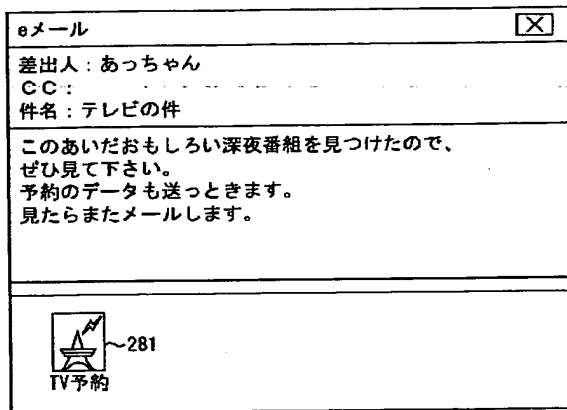 eメール
差出人：あっちゃん
CC：
件名：テレビの件
このあいだおもしろい深夜番組を見つけたので、
ぜひ見て下さい。
予約のデータも送っときます。
見たらまたメールします。
281
TV予約